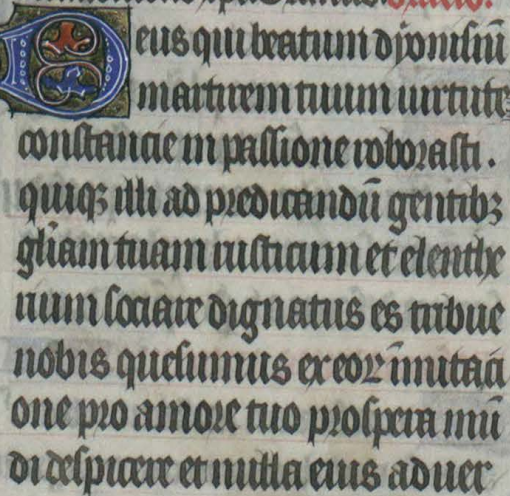 Deus qui beatum dyonisiū
martirem tuum uirtute
constancie in passione roborasti .
quiqꝫ illi ad predicandū gentibꝫ
gl̄iam tuam rusticum et eleuthe
rium sociare dignatus es tribue
nobis quesumus ex eoꝝ īmitaci
one pro amore tuo prospera mū
di despicere et nulla eius aduer